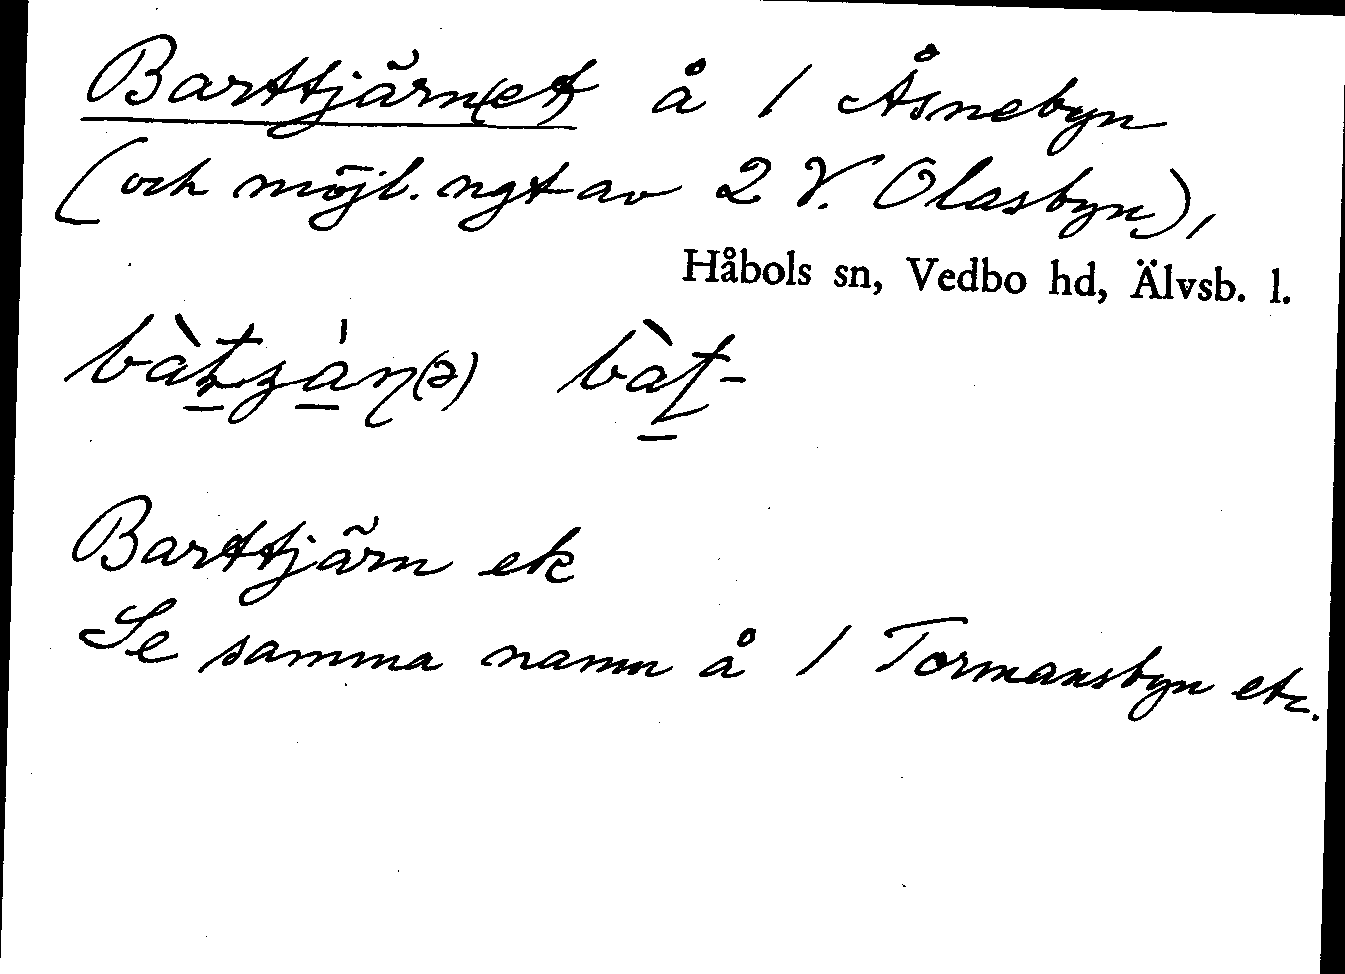 Barttjärn(et) å 1 Åsnebyn
(och möjl. ngt av 2 V. Olasbyn),
Håbols sn, Vedbo hd, Älvsb. l.
Barttjärn ek
Se samma namn å 1 Tormansbyn etc.